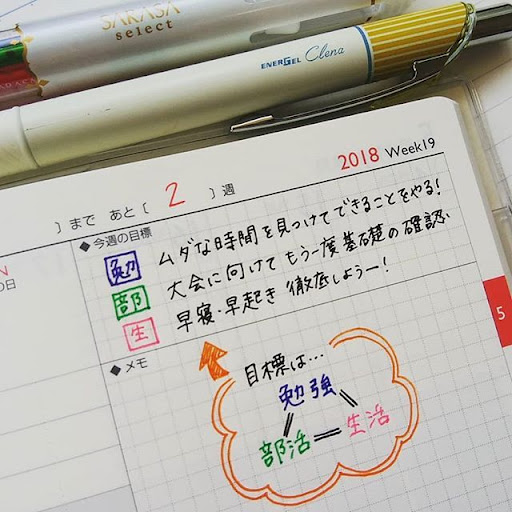 SARASA
select
ENERGEL Clena
2018 Week19
〕まで あと〔 2 〕週
◆今週の目標
勉 ムダな時間を見つけてできることをやる!
部 大会に向けてもう一度基礎の確認
生 早寝・早起き徹底しようー!
の日
5
◆メモ
目標は…
勉強
部活 = 生活